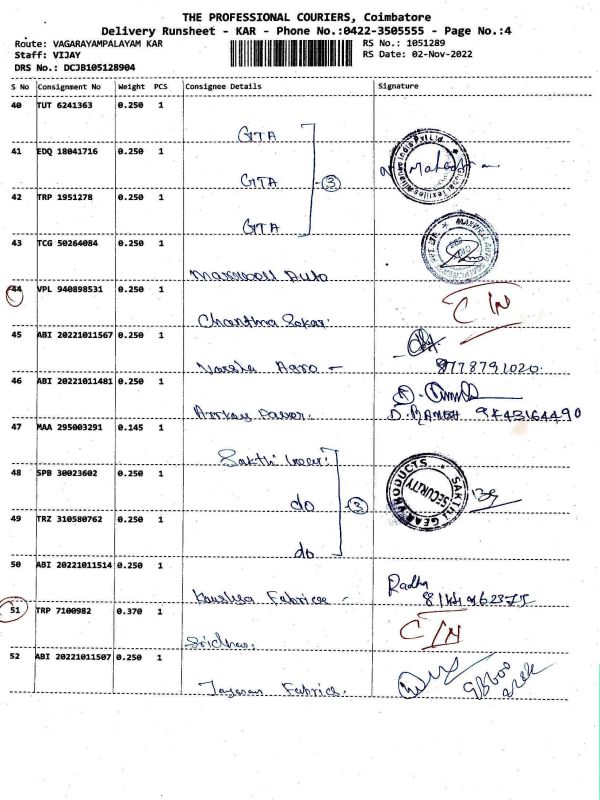 THE PROFESSIONAL COURIERS, Coimbatore
Delivery Runsheet - KAR - Phone No.:0422-3505555 - Page No.:4
Route: VAGARAYAMPALAYAM KAR RS No.: 1051289
Staff: VIJAY RS Date: 02-Nov-2022
DRS No.: DCJB105128904
S No Consignment No Weight PCS Consignee Details Signature
40 TUT 6241363 0.250 1
GTA
41 EDQ 18041716 0.250 1
GTA 3
42 TRP 1951278 0.250 1
GTA
43 TCG 50264084 0.250 1
Auto
44 VPL 940898531 0.250 1
C/N
45 ABI 20221011567 0.250 1
Agro - 9778791020.
46 ABI 20221011481 0.250 1
D. RAMESH 9843164490
47 MAA 295003291 0.145 1
Sakthi Gear:
SAKTHI GEAR PRODUCTS
SECURITY
48 SPB 30023602 0.250 1
do 3
49 TRZ 310580762 0.250 1
do
50 ABI 20221011514 0.250 1
Radha
Fabrics -
51 TRP 7100982 0.370 1
C/N
Sridhar.
52 ABI 20221011507 0.250 1
Fabrics.